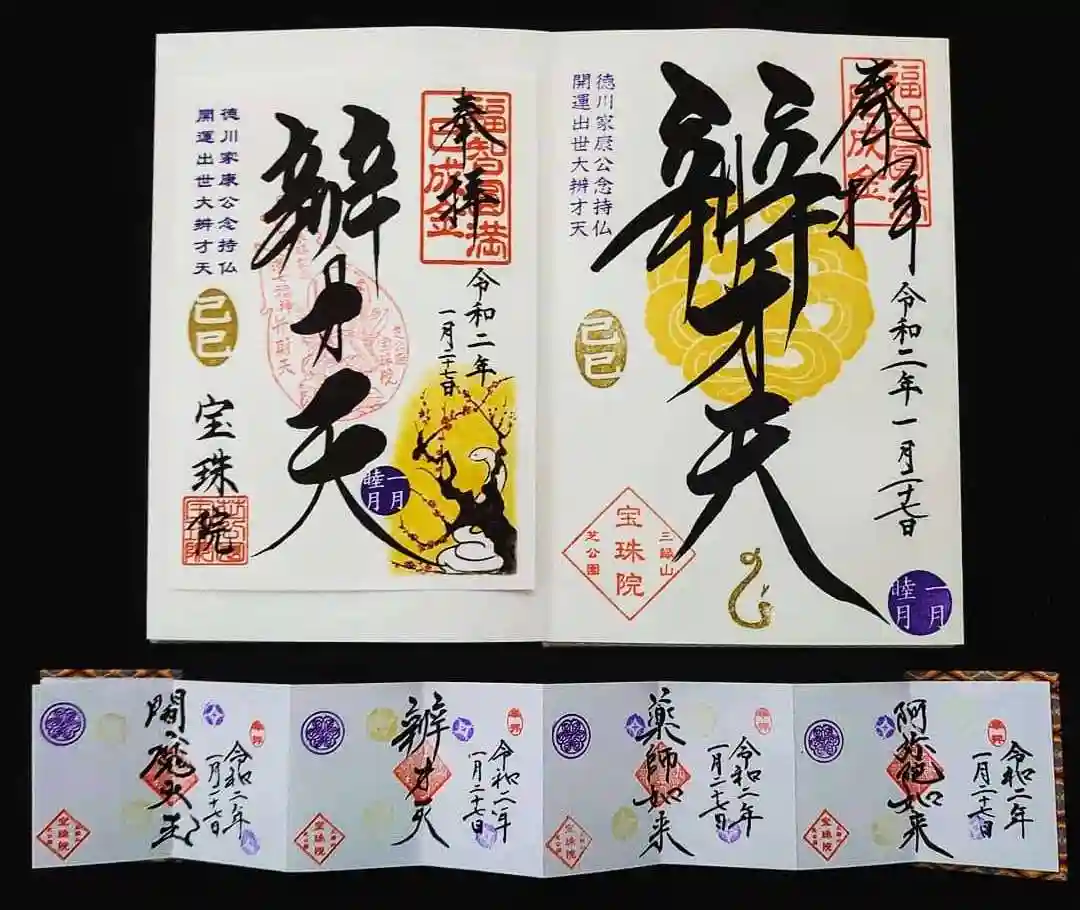 福智圓満
巳成金
奉拝
令和二年一月二十七日
辨才天
徳川家康公念持仏
開運出世大辨才天
己巳
三縁山
宝珠院
芝公園
一月
睦月
福智圓満
巳成金
奉拝
令和二年
一月二十七日
辨才天
芝公園
宝珠院
弁財天
一月
睦月
徳川家康公念持仏
開運出世大辨才天
己巳
宝珠院
奉拝
令和二年
一月二十七日
阿弥陀如来
宝珠院
奉拝
令和二年
一月二十七日
薬師如来
宝珠院
奉拝
令和二年
一月二十七日
辨才天
宝珠院
奉拝
令和二年
一月二十七日
閻魔大王
宝珠院